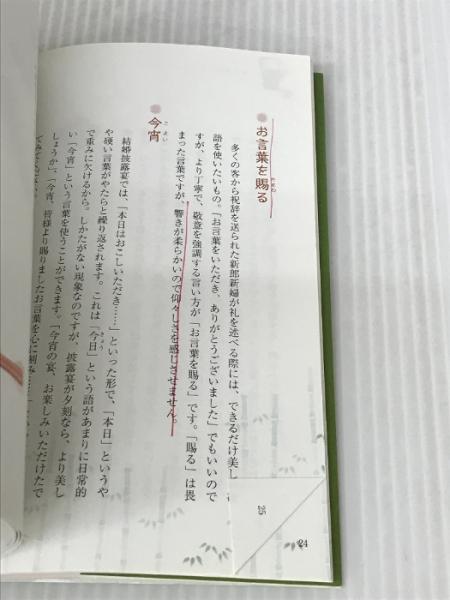 お言葉を賜る
たまわ
多くの客から祝辞を送られた新郎新婦が礼を述べる際には、できるだけ美し
語を使いたいもの。「お言葉をいただき、ありがとうございました」でもいいので
すが、より丁寧で、敬意を強調する言い方が「お言葉を賜る」です。「賜る」は畏
まった言葉ですが、響きが柔らかいので仰々しさを感じさせません。
今宵
こよい
結婚披露宴では、「本日はおこしいただき……」といった形で、「本日」というや
や硬い言葉がやたらと繰り返されます。これは「今日」という語があまりに日常的
きょう
で重みに欠けるから。しかたがない現象なのですが、披露宴が夕刻なら、より美し
い「今宵」という言葉を使うことができます。「今宵の宴、お楽しみいただけたで
しょうか」、「今宵、皆様より賜りましたお言葉を心に刻み……」
25
24